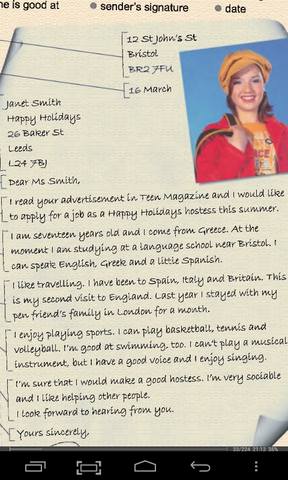 he is good at
sender's signature
date
12 St John's St
Bristol
BR2 7FU
16 March
Janet Smith
Happy Holidays
26 Baker St
Leeds
L24 7BJ
Dear Ms Smith,
I read your advertisement in Teen Magazine and I would like
to apply for a job as a Happy Holidays hostess this summer.
I am seventeen years old and I come from Greece. At the
moment I am studying at a language school near Bristol. I
can speak English, Greek and a little Spanish.
I like travelling. I have been to Spain, Italy and Britain. This
is my second visit to England. Last year I stayed with my
pen friend's family in London for a month.
I enjoy playing sports. I can play basketball, tennis and
volleyball. I'm good at swimming, too. I can't play a musical
instrument, but I have a good voice and I enjoy singing.
I'm sure that I would make a good hostess. I'm very sociable
and I like helping other people.
I look forward to hearing from you.
Yours sincerely,
33/224 21:13 35%